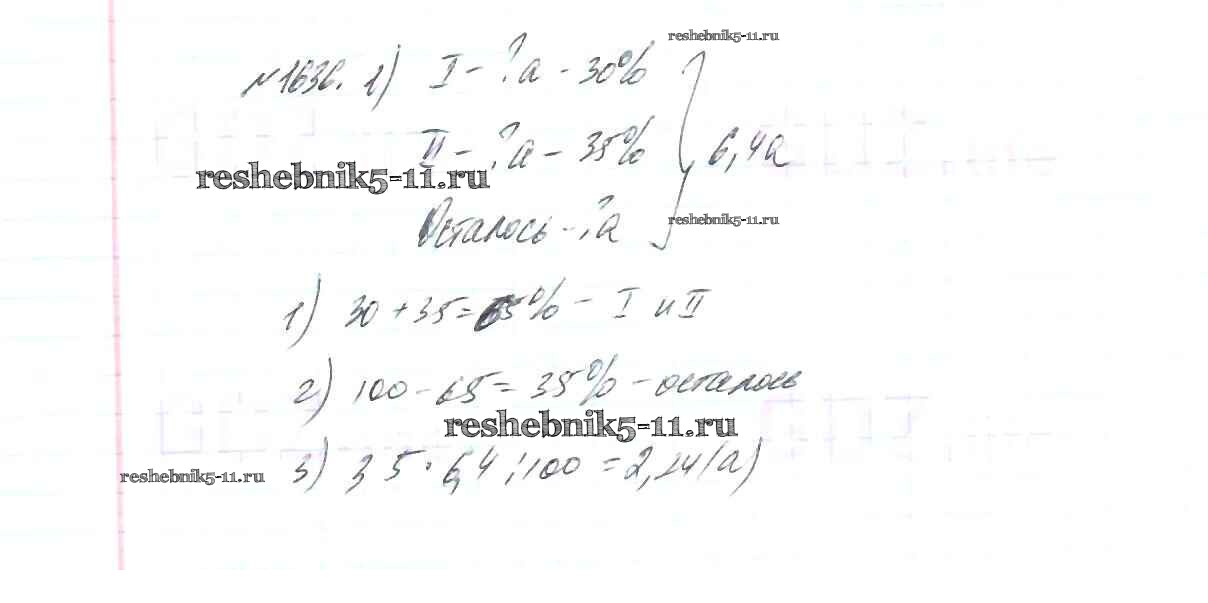 reshebnik5-11.ru
№1636. 1) I - ?а - 30%
II - ?а - 35% } 6,4а
reshebnik5-11.ru
Осталось - ?а
reshebnik5-11.ru
1) 30 + 35 = 65% - I и II
2) 100 - 65 = 35% - осталось
reshebnik5-11.ru
reshebnik5-11.ru
3) 35 · 6,4 : 100 = 2,24 (а)